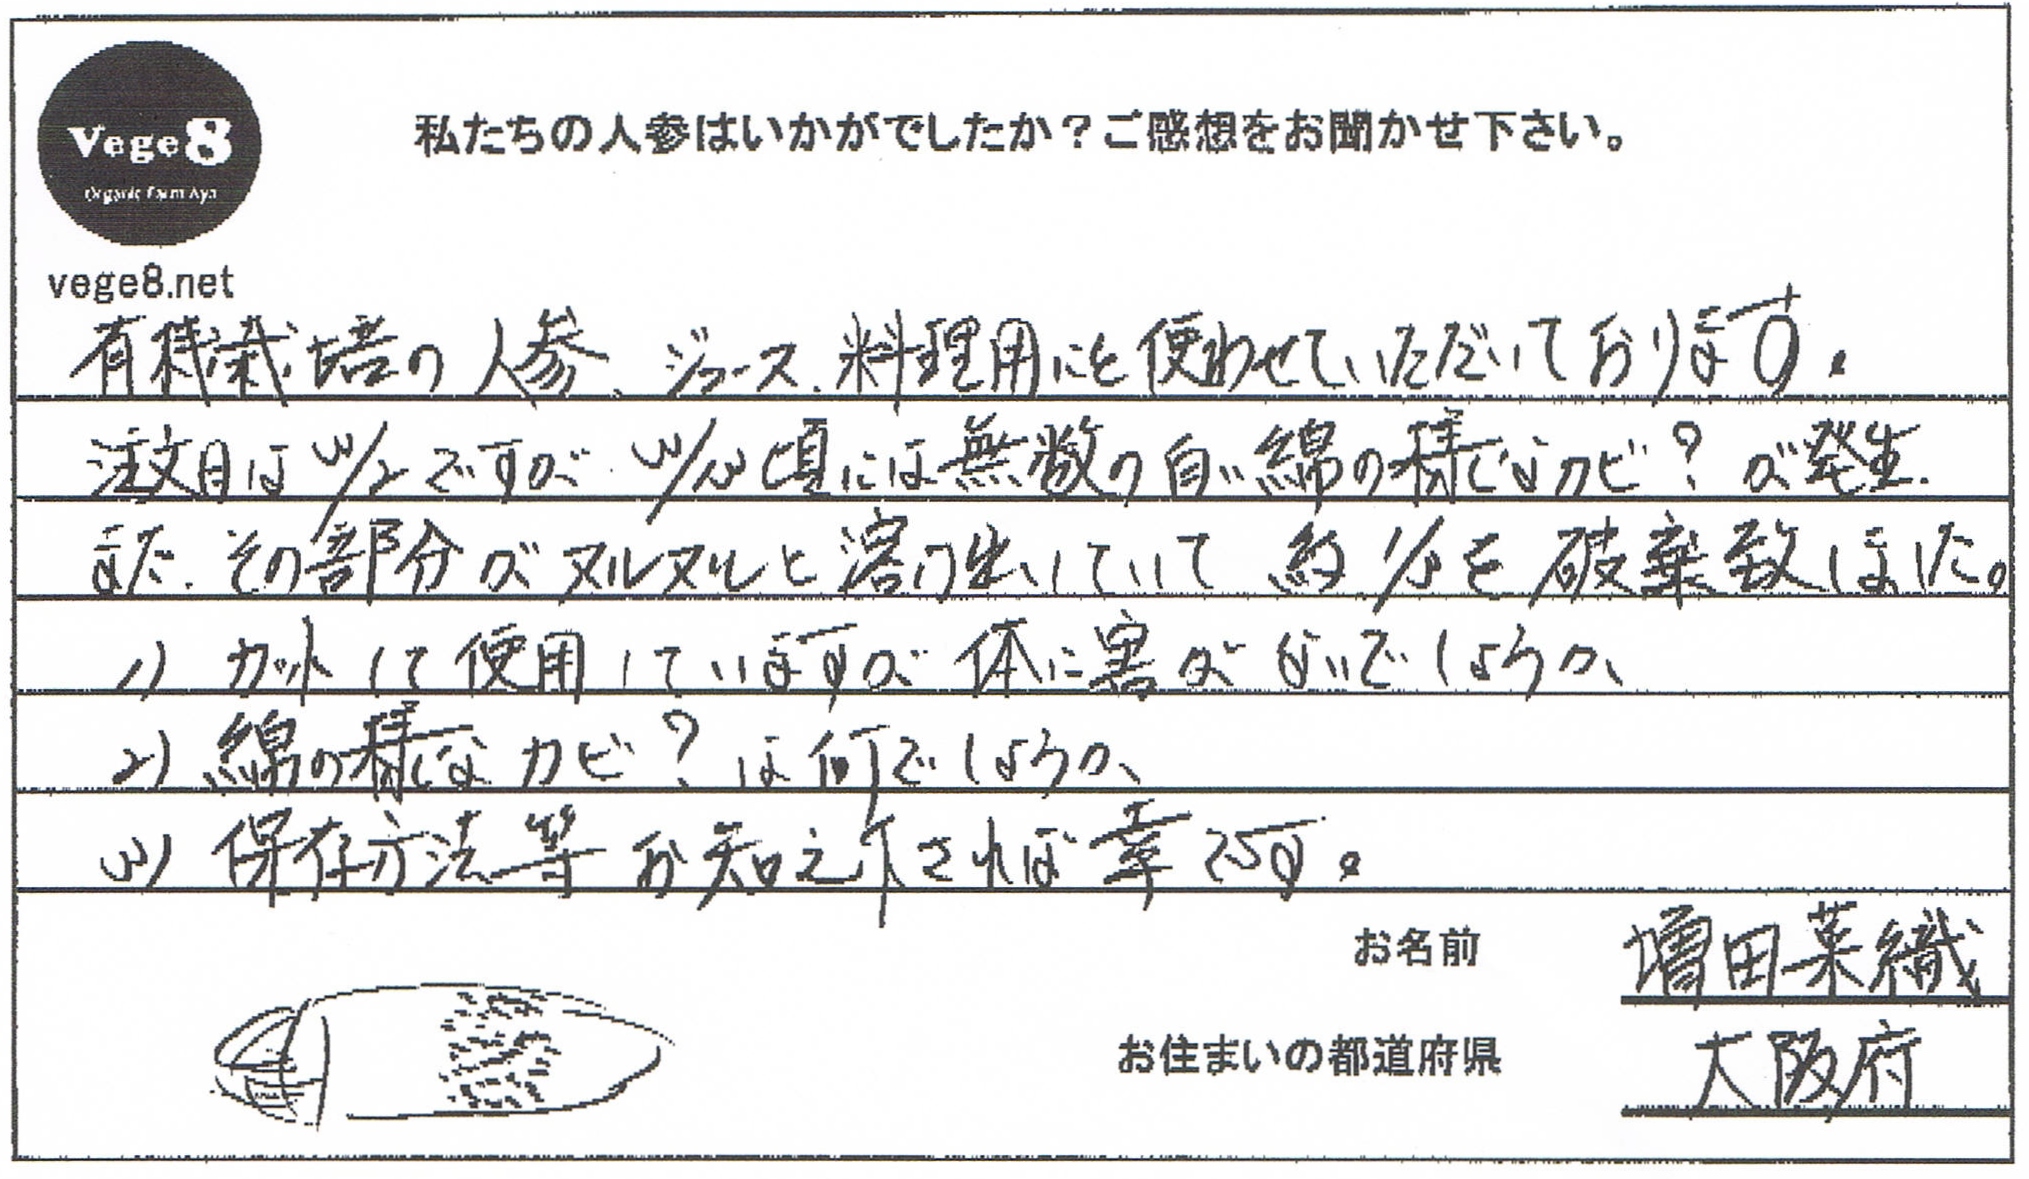 Vege8
Organic Farm Aya
vege8.net
私たちの人参はいかがでしたか？ご感想をお聞かせ下さい。
有機栽培の人参、ジュース、料理用にと使わせていただいております。
注文日は3/2ですが、3/13頃には無数の白い綿の様なカビ？が発生.
また、その部分がヌルヌルと溶け出していて 約1/3を破棄致しました。
1) カットして使用していますが 体に害がないでしょうか、
2) 綿の様なカビ？は何でしょうか、
3) 保存方法等お知え下されば幸です。
お名前 増田菜織
お住まいの都道府県 大阪府